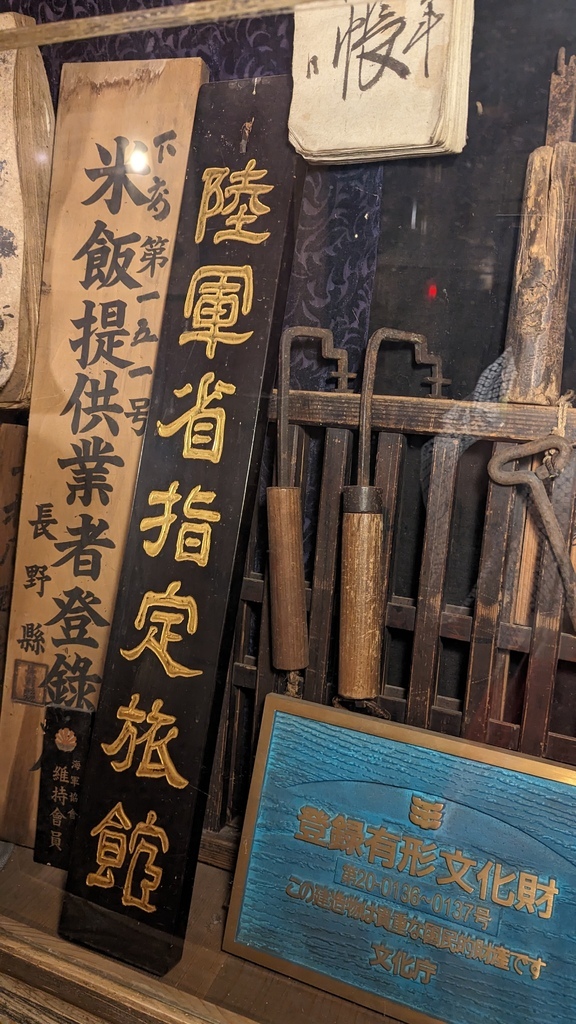 帳
下高第一五一号
米飯提供業者登録
長野縣
陸軍省指定旅館
海軍協會
維持會員
登録有形文化財
第20-0136~0137号
この建造物は貴重な国民的財産です
文化庁